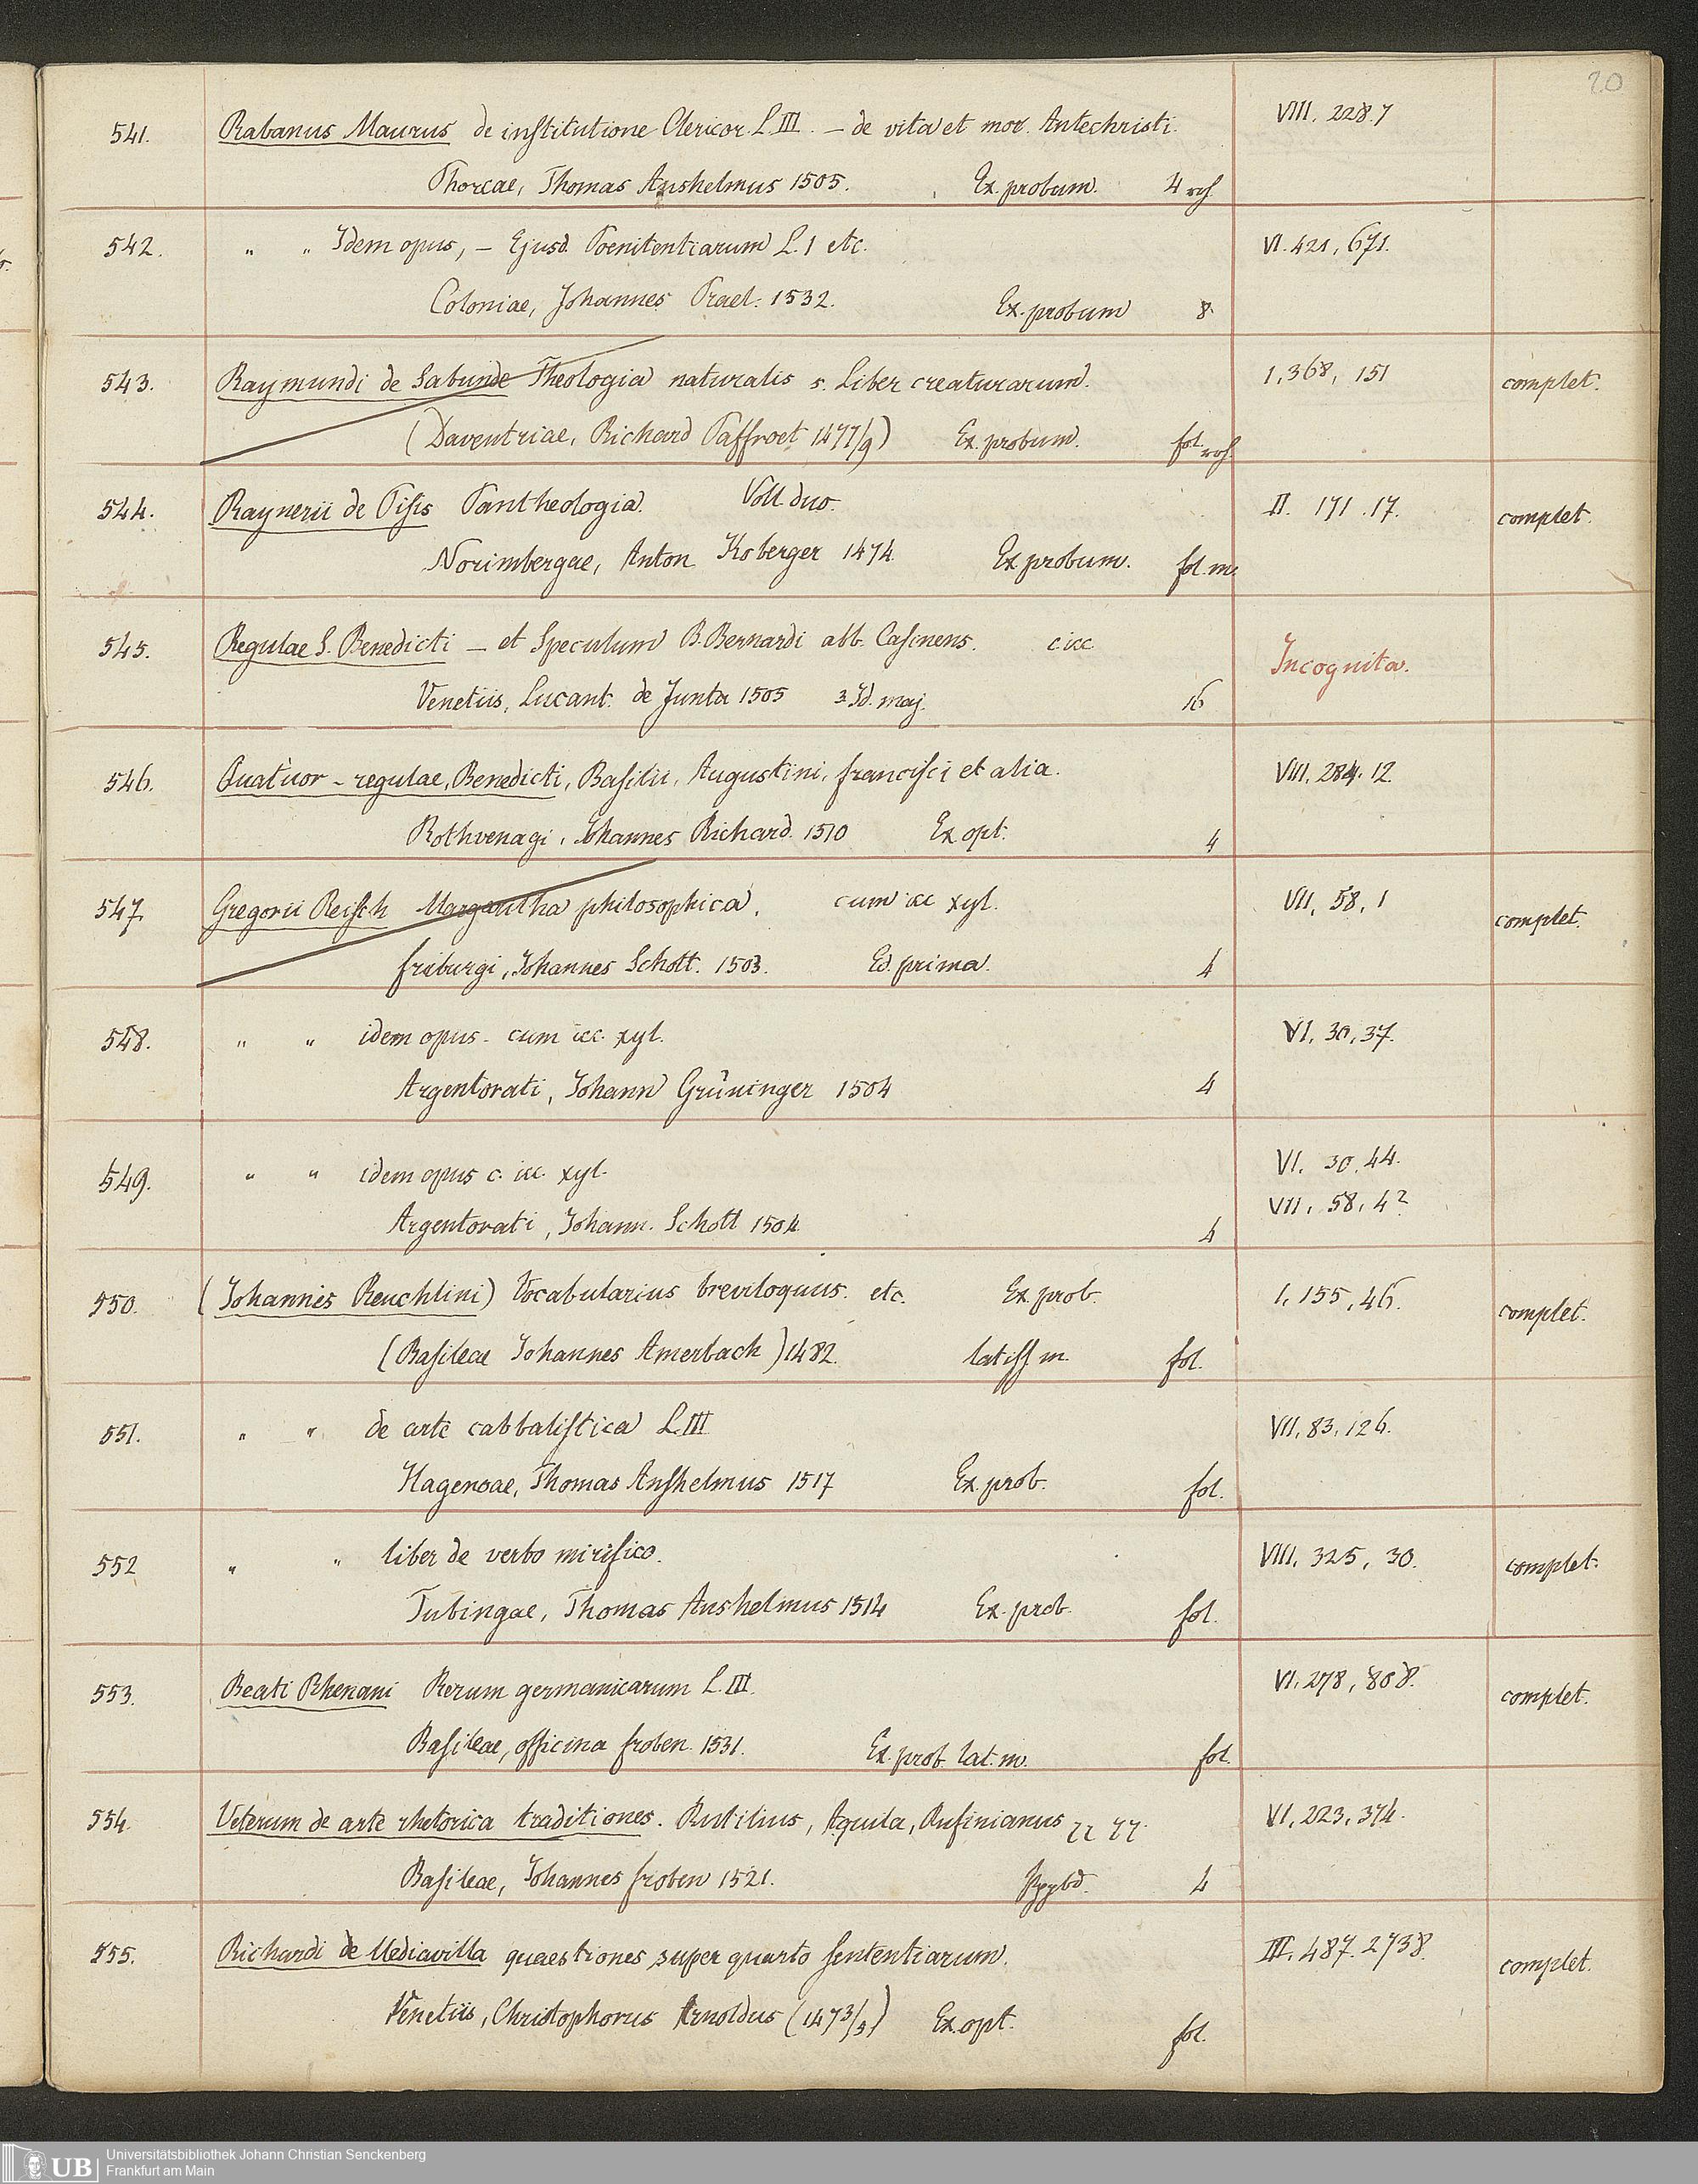 20
541. Rabanus Maurus de institutione Clericor. L. III. – de vita et mor. Antechristi. VIII. 228. 7
Phorcae, Thomas Anshelmus 1505. Ex. probum. 4
542. " " Idem opus, – Ejusd. Poenitentiarum L. 1 etc. VI. 421, 671.
Coloniae, Johannes Prael. 1532. Ex. probum 8.
543. Raymundi de Sabunde Theologia naturalis s. Liber creaturarum. 1, 368, 151 complet.
(Daventriae, Richard Paffroet 1477/9) Ex. probum. fol.
544. Raynerii de Pisis Pantheologia. Voll. duo. II. 171. 17. complet.
Norimbergae, Anton Koberger 1474. Ex probum. fol. m.
545. Regulae S. Benedicti – et Speculum B. Bernardi abb. Casinens. c icc Incognita.
Venetiis, Lucant. de Junta 1505 3 Id. maj. 16
546. Quatuor – regulae, Benedicti, Basilii, Augustini, francisci et alia. VIII. 284. 12.
Rothvenagi, Johannes Richard. 1510 Ex opt. 4
547. Gregorii Reisch Margaritha philosophica, cum icc xyl. VII, 58, 1 complet.
friburgi, Johannes Schott. 1503. Ed. prima. 4
548. " " idem opus. cum icc. xyl. VI, 30, 37.
Argentorati, Johann Grüninger 1504 4
549. " " idem opus c. icc. xyl. VI. 30. 44.
VII, 58, 4?
Argentorati, Johann. Schott 1504 4
550. (Johannis Reuchlini) Vocabularius breviloquus. etc. Ex. prob. 1, 155, 46. complet.
(Basileae Johannes Amerbach) 1482. latiss m. fol.
551. " " de arte cabbalistica L. III VII, 83, 126.
Hagenoae, Thomas Anshelmus 1517 Ex. prob. fol.
552 " " liber de verbo mirifico. VIII, 325, 30. complet.
Tubingae, Thomas Anshelmus 1514 Ex. prob. fol.
553. Beati Rhenani Rerum germanicarum L. III. VI. 278, 808. complet.
Basileae, officina froben. 1531. Ex. prob. lat. m. fol.
554. Veterum de arte rhetorica traditiones. Rutilius, Aquila, Rufinianus VI, 223, 374.
Basileae, Johannes froben 1521. 4
555. Richardi de Mediavilla quaestiones super quarto sententiarum. III. 487. 2738. complet.
Venetiis, Christophorus Arnoldus (1473/5) Ex. opt. fol.
UB Universitätsbibliothek Johann Christian Senckenberg
Frankfurt am Main